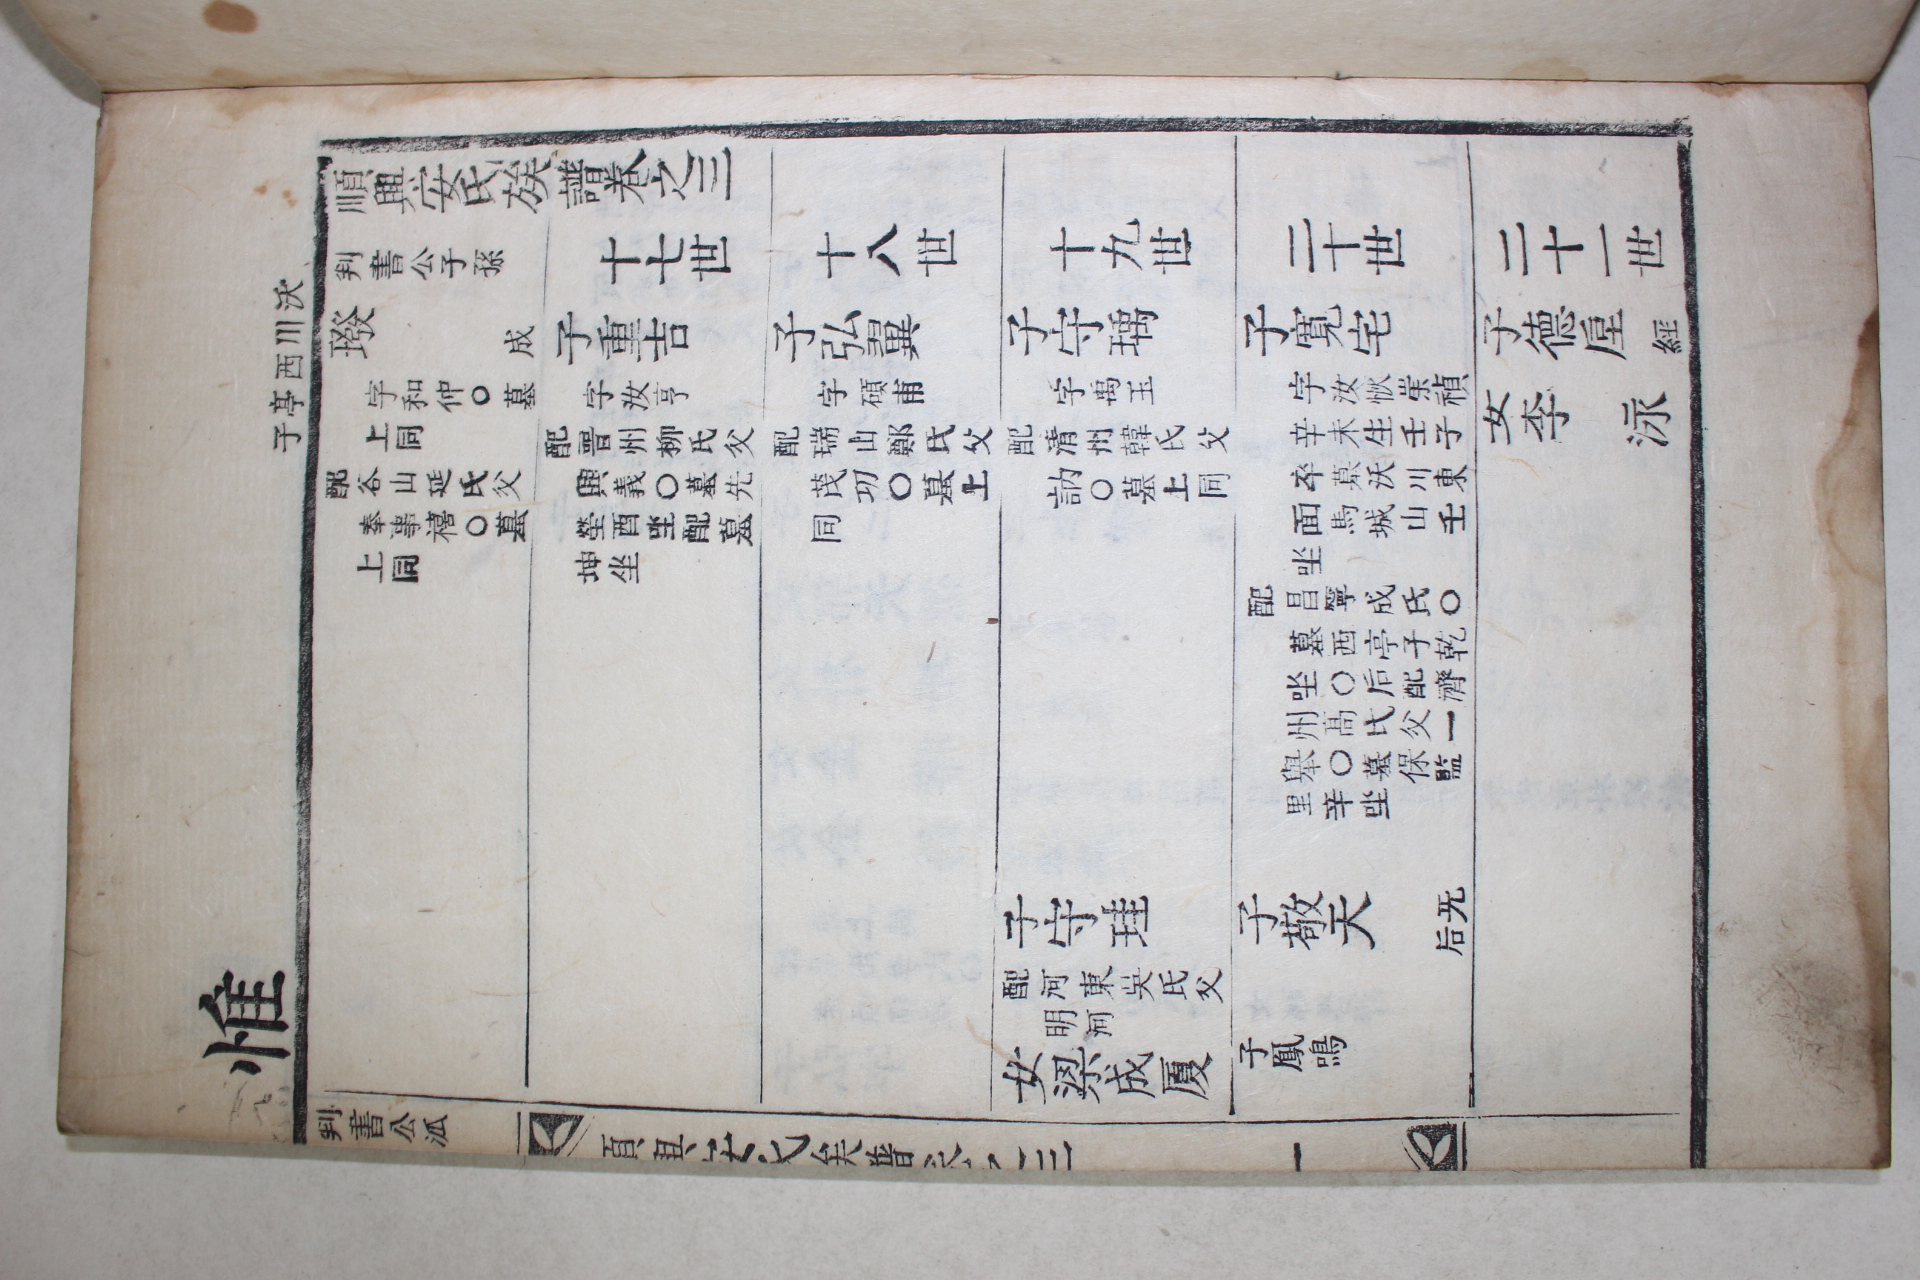 惟
沃川西亭子
順興安氏族譜卷之三
判書公子孫
十七世
十八世
十九世
二十世
二十一世
璑 成
字和仲〇墓
上同
配谷山延氏父
奉事禧〇墓
上同
子重吉
字汝亨
配晋州柳氏父
興義〇墓先
塋酉坐配墓
坤坐
子弘翼
字碩甫
配瑞山鄭氏父
茂功〇墓上
同
子守瑀
字禹玉
配清州韓氏父
訥〇墓上同
子守珪
配河東吳氏父
明河
女梁成厦
子寬宅
字汝恢崇禎
辛未生壬子
卒墓沃川東
面馬城山壬
坐
配昌寧成氏〇
墓西亭子乾
坐〇后配濟
州高氏父一
舉〇墓保監
里辛坐
子敬天 无后
子鳳鳴
子德垕 經
女李 泳
判書公派
順興安氏族譜卷之三
一